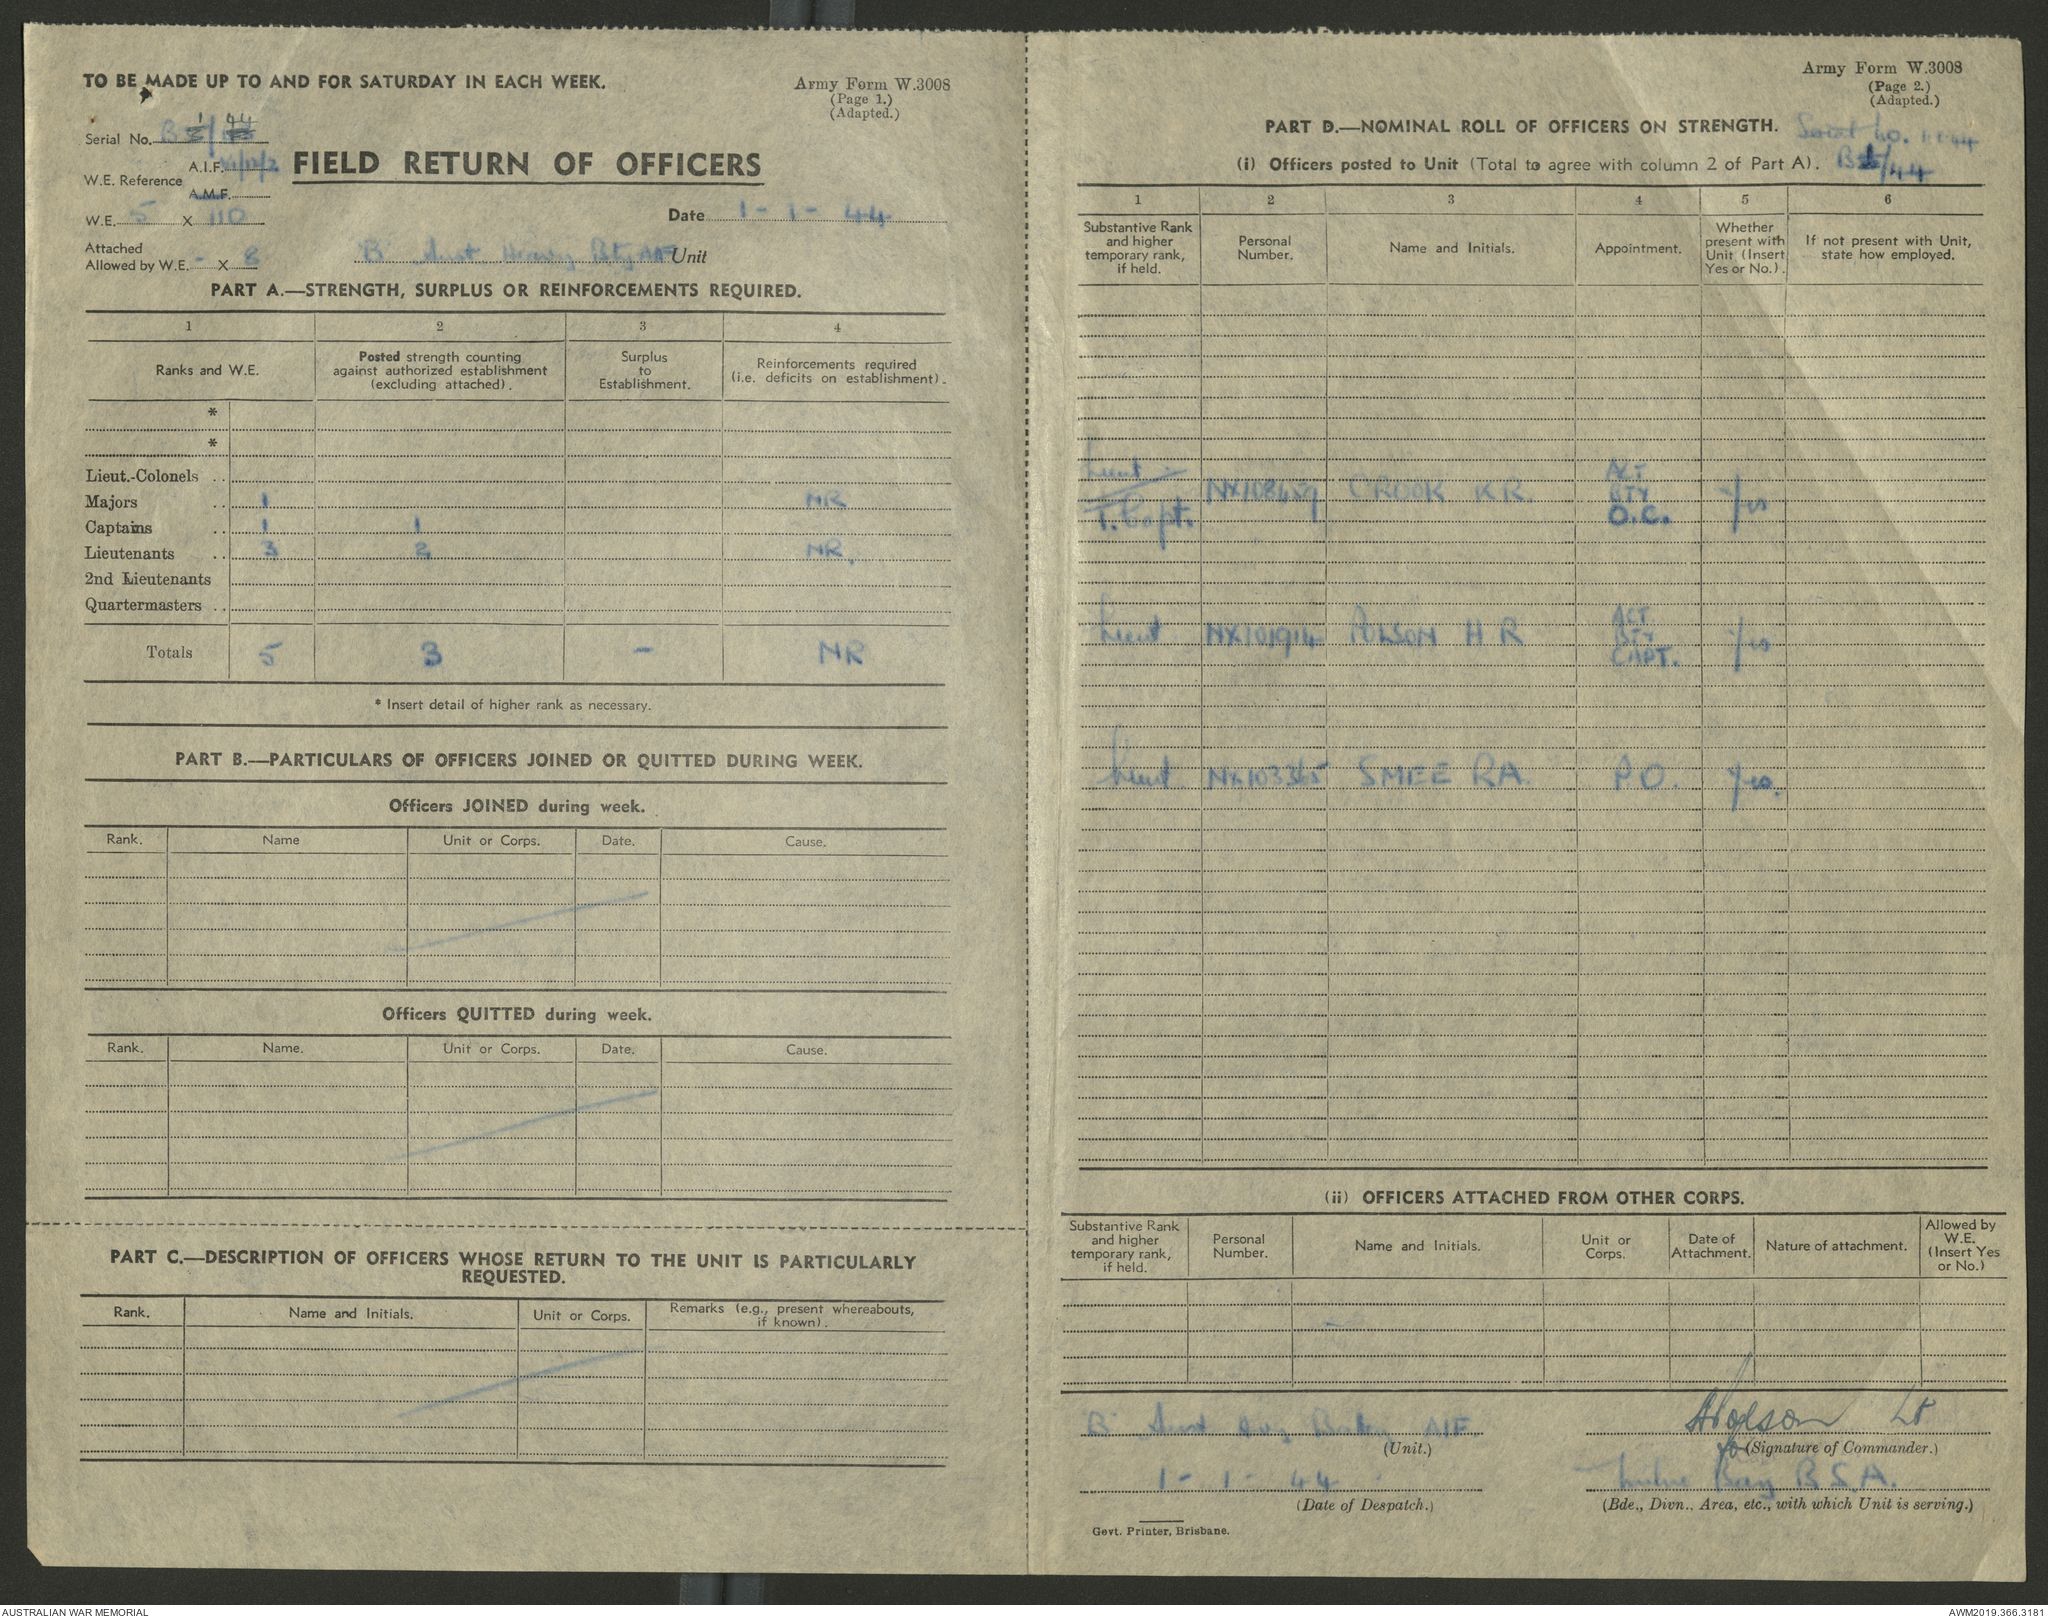 TO BE MADE UP TO AND FOR SATURDAY IN EACH WEEK.
Army Form W.3008
(Page 1.)
(Adapted.)
Serial No. B 1/44
W.E. Reference A.I.F.
A.M.F.
FIELD RETURN OF OFFICERS
W.E. 5 X 110
Date 1 - 1 - 44
Attached
Allowed by W.E. - X 8
'B' Aust. Heavy Bty AIF Unit
PART A.—STRENGTH, SURPLUS OR REINFORCEMENTS REQUIRED.
1 2 3 4
Ranks and W.E.
Posted strength counting
against authorized establishment
(excluding attached).
Surplus
to
Establishment.
Reinforcements required
(i.e. deficits on establishment).
*
*
Lieut.-Colonels ..
Majors .. 1 NR
Captains .. 1 1
Lieutenants .. 3 2 NR
2nd Lieutenants
Quartermasters ..
Totals 5 3 - NR
* Insert detail of higher rank as necessary.
PART B.—PARTICULARS OF OFFICERS JOINED OR QUITTED DURING WEEK.
Officers JOINED during week.
Rank. Name Unit or Corps. Date. Cause.
Officers QUITTED during week.
Rank. Name. Unit or Corps. Date. Cause.
PART C.—DESCRIPTION OF OFFICERS WHOSE RETURN TO THE UNIT IS PARTICULARLY
REQUESTED.
Rank. Name and Initials. Unit or Corps. Remarks (e.g., present whereabouts,
if known).
Army Form W.3008
(Page 2.)
(Adapted.)
PART D.—NOMINAL ROLL OF OFFICERS ON STRENGTH. Serial No.
(i) Officers posted to Unit (Total to agree with column 2 of Part A). B 1/44
1 2 3 4 5 6
Substantive Rank
and higher
temporary rank,
if held.
Personal
Number.
Name and Initials.
Appointment.
Whether
present with
Unit (Insert
Yes or No.).
If not present with Unit,
state how employed.
Lieut
T. Capt. NX108459 CROOK K R ACT BTY O.C. Yes
Lieut NX101914 POLSON H R ACT. BTY CAPT. Yes
Lieut NX103365 SMEE R A. P.O. Yes.
(ii) OFFICERS ATTACHED FROM OTHER CORPS.
Substantive Rank
and higher
temporary rank,
if held.
Personal
Number.
Name and Initials.
Unit or
Corps.
Date of
Attachment.
Nature of attachment.
Allowed by
W.E.
(Insert Yes
or No.)
'B' Aust Hvy Battery AIF.
(Unit.)
HPolson Lt
for (Signature of Commander.)
1 - 1 - 44
(Date of Despatch.)
Milne Bay B.S.A.
(Bde., Divn., Area, etc., with which Unit is serving.)
Govt. Printer, Brisbane.
AUSTRALIAN WAR MEMORIAL
AWM2019.366.3181